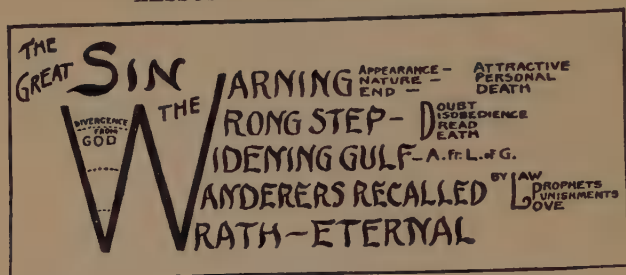 THE
GREAT SIN
THE
DIVERGENCE
FROM
GOD
WARNING APPEARANCE - ATTRACTIVE
NATURE - PERSONAL
END - DEATH
WRONG STEP - DOUBT
DISOBEDIENCE
DREAD
DEATH
WIDENING GULF - A. Fr. L. of G.
WANDERERS RECALLED BY LAW
PROPHETS
PUNISHMENTS
LOVE
WRATH - ETERNAL